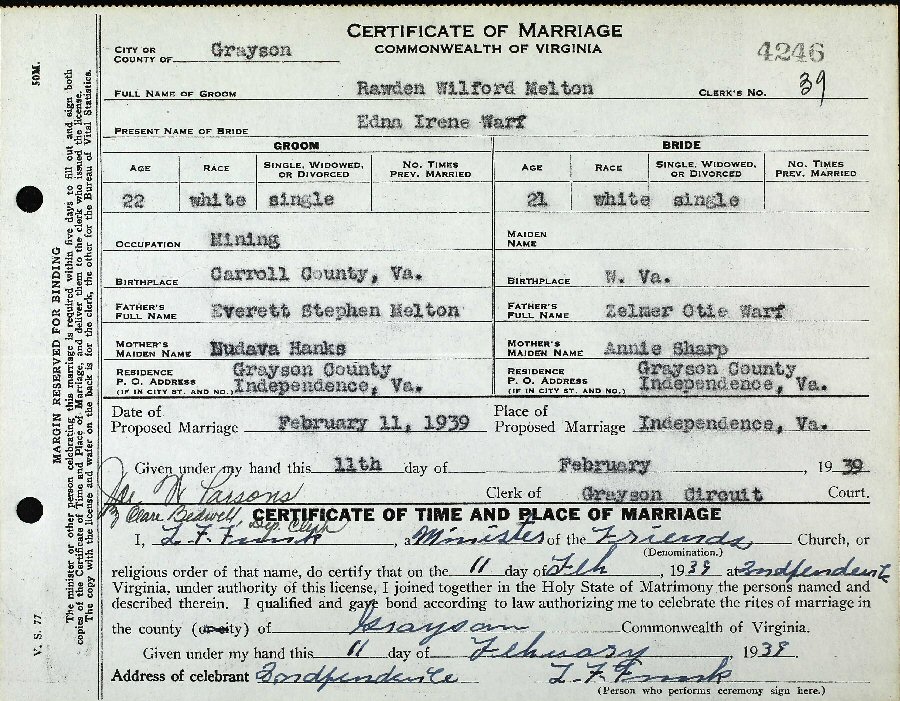 CERTIFICATE OF MARRIAGE
COMMONWEALTH OF VIRGINIA
4246
CITY OR
COUNTY OF Grayson
FULL NAME OF GROOM Rawden Wilford Melton CLERK'S NO. 39
PRESENT NAME OF BRIDE Edna Irene Warf
GROOM BRIDE
AGE RACE SINGLE, WIDOWED, OR DIVORCED NO. TIMES PREV. MARRIED AGE RACE SINGLE, WIDOWED, OR DIVORCED NO. TIMES PREV. MARRIED
22 white single 21 white single
OCCUPATION Mining MAIDEN NAME
BIRTHPLACE Carroll County, Va. BIRTHPLACE W. Va.
FATHER'S FULL NAME Everett Stephen Melton FATHER'S FULL NAME Zelmer Otie Warf
MOTHER'S MAIDEN NAME Nudava Hanks MOTHER'S MAIDEN NAME Annie Sharp
RESIDENCE Grayson County RESIDENCE Grayson County
P. O. ADDRESS Independence, Va. P. O. ADDRESS Independence, Va.
(IF IN CITY ST. AND NO.) (IF IN CITY ST. AND NO.)
Date of Proposed Marriage February 11, 1939 Place of Proposed Marriage Independence, Va.
Given under my hand this 11th day of February, 1939
Parsons Clerk of Grayson Circuit Court.
By Clare Bedwell Dep. Clerk
CERTIFICATE OF TIME AND PLACE OF MARRIAGE
I, L. F. Funk, a Minister of the Friends Church, or
(Denomination.)
religious order of that name, do certify that on the 11 day of Feb, 1939 at Indpendenite
Virginia, under authority of this license, I joined together in the Holy State of Matrimony the persons named and
described therein. I qualified and gave bond according to law authorizing me to celebrate the rites of marriage in
the county (or city) of Grayson Commonwealth of Virginia.
Given under my hand this 11 day of Febuary, 1939.
Address of celebrant Indpendenite L. F. Funk
(Person who performs ceremony sign here.)
50M.
MARGIN RESERVED FOR BINDING
The minister or other person celebrating this marriage is required within five days to fill out and sign both
copies of the Certificate of Time and Place of Marriage, and deliver them to the clerk who issued the license.
The copy with the license and wafer on the back is for the clerk, the other for the Bureau of Vital Statistics.
V. S. 77